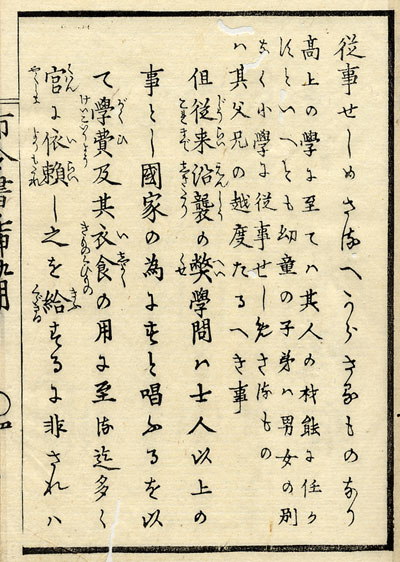 従事せしめさるへからさるものなり
高上の學に至てハ其人の材能に任か
すといへとも幼童の子弟ハ男女の別
なく小學に従事せしめさるもの
ハ其父兄の越度たるへき事
但従来沿襲の弊學問ハ士人以上の
事とし國家の為にすと唱ふるを以
て學費及其衣食の用に至る迄多く
官に依頼し之を給するに非されハ